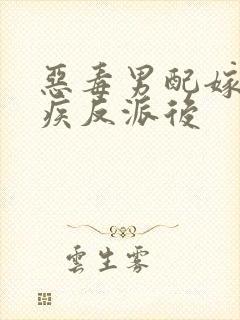 惡毒男配嫁
疾反派後
雲生霧